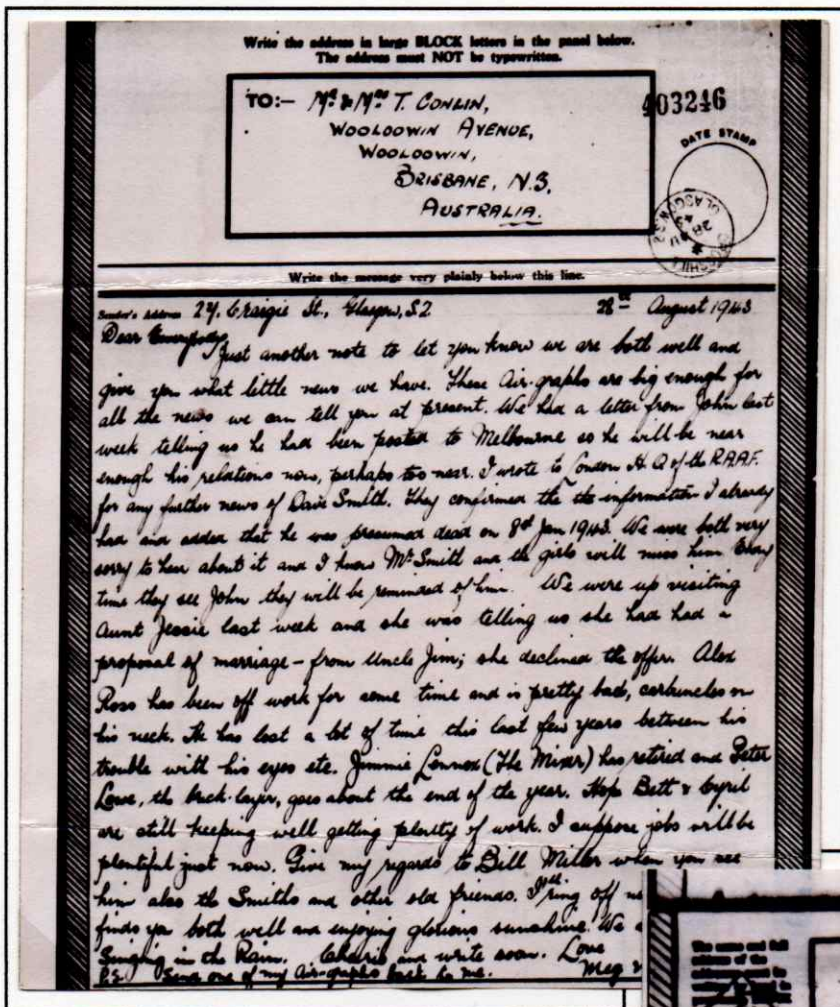 Write the address in large BLOCK letters in the panel below.
The address must NOT be typewritten.
TO:— Mr & Mrs T. CONLIN,
WOOLOOWIN AVENUE,
WOOLOOWIN,
BRISBANE, N.3,
AUSTRALIA.
403246
DATE STAMP
GLASGOW
28 AU
43
Write the message very plainly below this line.
Sender's Address 27, Craigie St., Glasgow, S.2 August 1943
Dear Everybody,
Just another note to let you know we are both well and
give you what little news we have. These Air-graphs are big enough for
all the news we can tell you at present. We had a letter from John last
week telling us he had been posted to Melbourne so he will be near
enough his relations now, perhaps too near. I wrote to London H.Q of the R.A.A.F.
for any further news of Dave Smith. They confirmed the the information I already
had and added that he was presumed dead on 8th Jan 1943. We were both very
sorry to hear about it and I know Mr Smith and the girls will miss him Every
time they see John they will be reminded of him. We were up visiting
Aunt Jessie last week and she was telling us she had had a
proposal of marriage – from Uncle Jim; she declined the offer. Alex
Ross has been off work for some time and is pretty bad, carbuncles on
his neck. He has lost a lot of time this last few years between his
trouble with his eyes etc. Jimmie Lennox (The Mixer) has retired and Peter
Lowe, the brick-layer, goes about the end of the year. Bett & Cyril
are still keeping well getting plenty of work. I suppose jobs will be
plentiful just now. Give my regards to Bill Miller when you see
him also the Smiths and other old friends. ring off
finds you both well and enjoying glorious sunshine. We
Singing in the Rain. Cheerio and write soon. Love
P.S. Send one of my Air-graphs back to me. Meg
The name and full
address of the